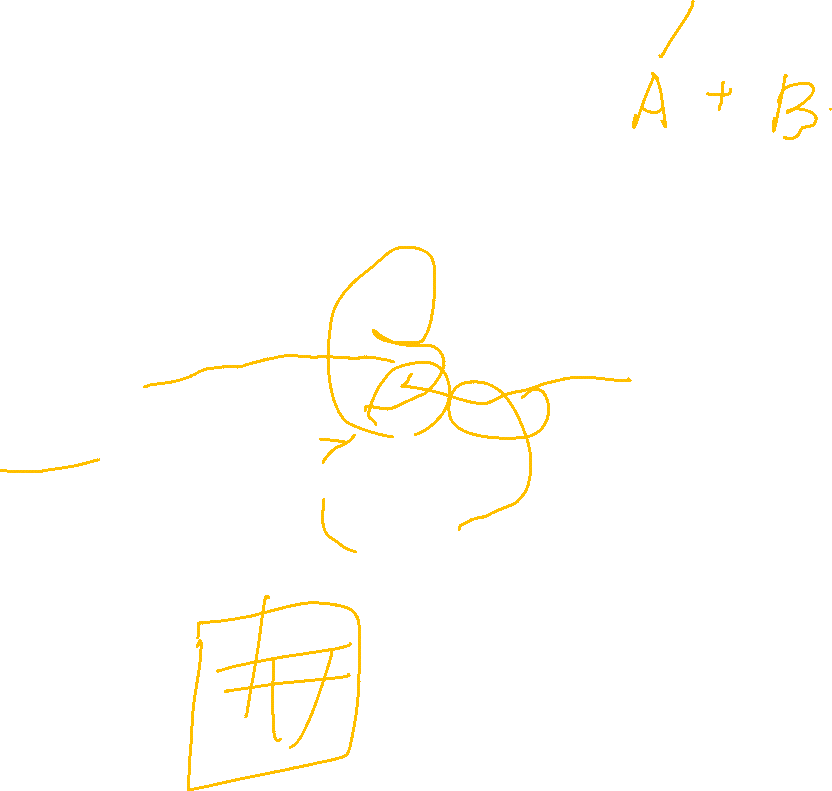 A + B